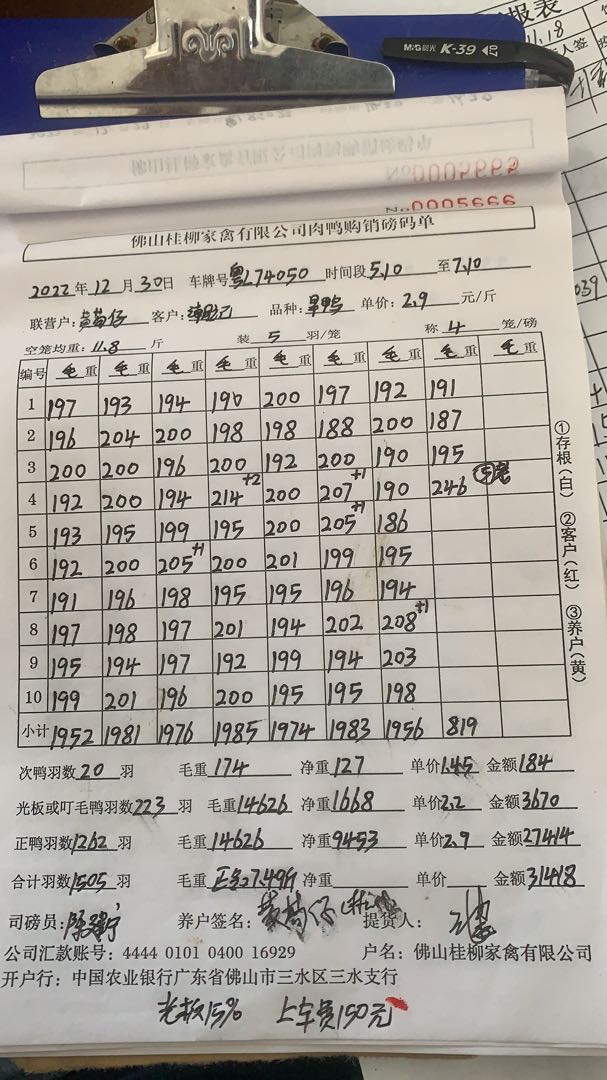 报表
11.18
M&G 晨光 K-39
No0005666
佛山桂柳家禽有限公司肉鸭购销磅码单
2022年12月30日 车牌号粤L74050 时间段5.10至7.10
联营户: 客户: 品种: 单价:2.9元/斤
空笼均重:11.8斤 装5羽/笼 称4笼/磅
编号 毛重 毛重 毛重 毛重 毛重 毛重 毛重 毛重 毛重
1 197 193 194 190 200 197 192 191
2 196 204 200 198 198 188 200 187
3 200 200 196 200 192 200 190 195
4 192 200 194 214+2 200 207+1 190 246 ⑤笼
5 193 195 199 195 200 205+1 186
6 192 200 205+1 200 201 199 195
7 191 196 198 195 195 196 194
8 197 198 197 201 194 202 208+1
9 195 194 197 192 199 194 203
10 199 201 196 200 195 195 198
小计 1952 1981 1976 1985 1974 1983 1956 819
①存根(白) ②客户(红) ③养户(黄)
次鸭羽数20羽 毛重174 净重127 单价1.45 金额184
光板或叮毛鸭羽数223羽 毛重14626 净重1668 单价2.2 金额3670
正鸭羽数1262羽 毛重14626 净重9453 单价2.9 金额27414
合计羽数1505羽 毛重正包7.49斤 净重 单价 金额31418
司磅员: 养户签名: 提货人:
公司汇款账号: 4444 0101 0400 16929 户名: 佛山桂柳家禽有限公司
开户行: 中国农业银行广东省佛山市三水区三水支行
光板15% 上车费150元